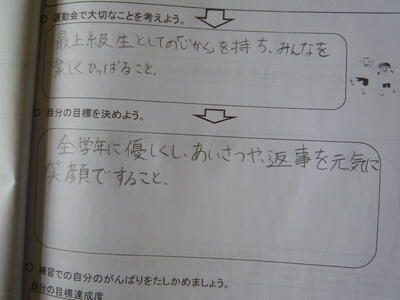 ○ 運動会で大切なことを考えよう。
最上級生としての「じかく」を持ち、みんなを
楽しくひっぱること。
○ 自分の目標を決めよう。
全学年に優しくし、あいさつや、返事を元気に
笑顔ですること。
○ 練習での自分のがんばりをたしかめましょう。
自分の目標達成度